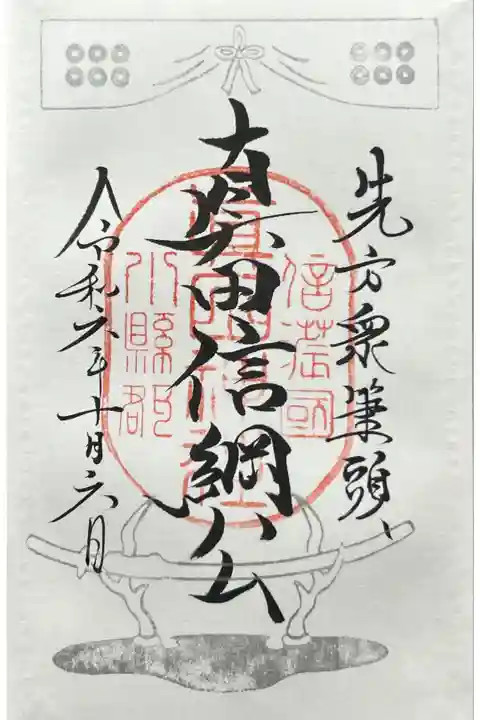 先方衆筆頭、
真田信綱公
令和六年十月六日
信荗國
真田神社
小縣郡